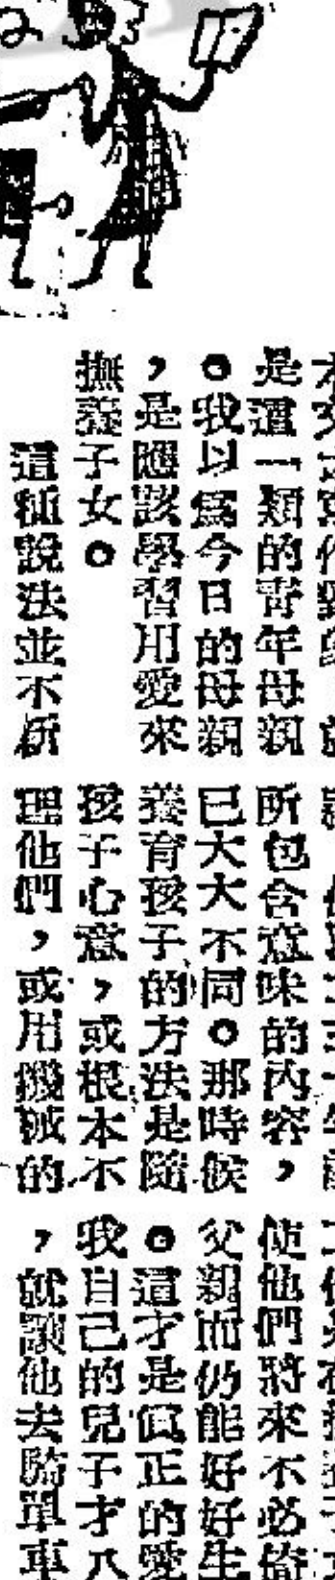 是這一類的青年母親
。我以爲今日的母親
，是應該學習用愛來
撫養子女。
這種說法並不新
所包含意味的內容，
已大大不同。那時候
養育孩子的方法是隨
孩子心意，或根本不
理他們，或用機械的
使他們將來不必倚
父親而仍能好好生
。這才是眞正的愛
我自己的兒子才八
，就讓他去騎單車